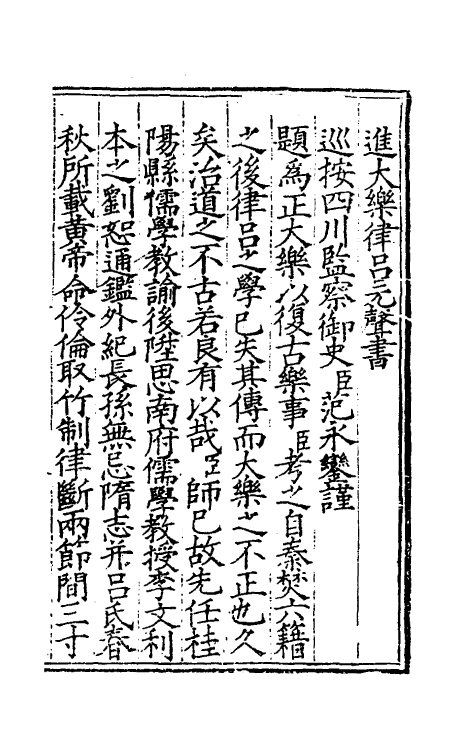 進大樂律呂元聲書
巡按四川監察御史臣范永鑾謹
題爲正大樂以復古樂事臣考之自秦焚六籍
之後律呂之學已失其傳而大樂之不正也久
矣治道之不古若良有以哉臣師已故先任桂
陽縣儒學教諭後陞思南府儒學教授李文利
本之劉恕通鑑外紀長孫無忌隋志并呂氏春
秋所載黃帝命伶倫取竹制律斷兩節間三寸